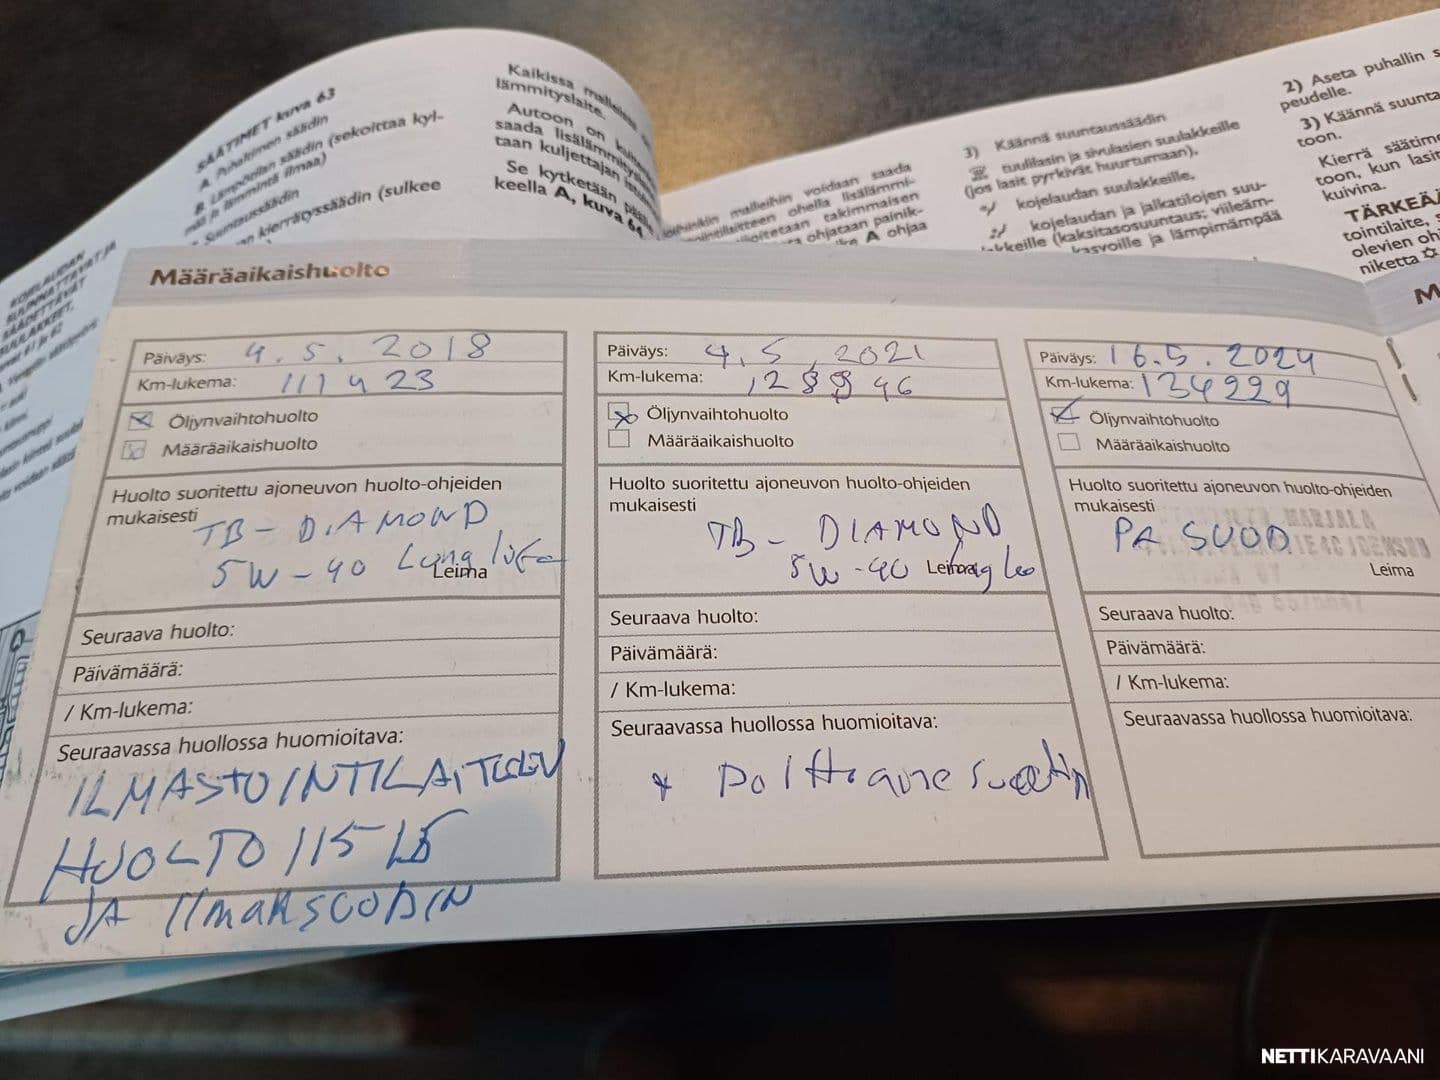 SÄÄTIMET kuva 63
A. Puhaltimen säädin
B. Lämpötilan säädin (sekoittaa kyl-
mää ja lämmintä ilmaa)
Suuntaussäädin
kierrätyssäädin (sulkee
Kaikissa malleissa
lämmityslaite.
Autoon on
saada lisälämmitys
taan kuljettajan
Se kytketään
keella A, kuva 64
malleihin voidaan saada
ohella lisälämmi-
takimmaisen
ohjataan painik-
A ohjaa
3) Käännä suuntaussäädin
tuulilasin ja sivulasien suulakkeille
(jos lasit pyrkivät huurtumaan).
kojelaudan suulakkeille.
kojelaudan ja jalkatilojen suu-
lakkeille (kaksitasosuuntaus; viileäm-
kasvoille ja lämpimämpää
2) Aseta puhallin
peudelle.
3) Käännä suunta
toon.
Kierrä säätime
toon, kun lasit
kuivina.
TÄRKEÄÄ
tointilaite,
olevien oh
niketta
KOJELAUDAN
SUUNNATTAVAT JA
SÄÄDETTÄVÄT
SUULAKKEET,
Määräaikaishuolto
Päiväys: 4.5.2018
Km-lukema: 111423
Öljynvaihtohuolto
Määräaikaishuolto
Huolto suoritettu ajoneuvon huolto-ohjeiden
mukaisesti
TB - DIAMOND
5W-40 Long life
Leima
Seuraava huolto:
Päivämäärä:
/ Km-lukema:
Seuraavassa huollossa huomioitava:
ILMASTOINTILAITTEEN
HUOLTO 115
JA ILMANSUODIN
Päiväys: 4.5.2021
Km-lukema:
Öljynvaihtohuolto
Määräaikaishuolto
Huolto suoritettu ajoneuvon huolto-ohjeiden
mukaisesti
TB - DIAMOND
5W-40
Leima
Seuraava huolto:
Päivämäärä:
/ Km-lukema:
Seuraavassa huollossa huomioitava:
Päiväys: 16.5.2024
Km-lukema: 134229
Öljynvaihtohuolto
Määräaikaishuolto
Huolto suoritettu ajoneuvon huolto-ohjeiden
mukaisesti
PA SUOD
MARJALA
Leima
Seuraava huolto:
Päivämäärä:
/ Km-lukema:
Seuraavassa huollossa huomioitava:
NETTIKARAVAANI